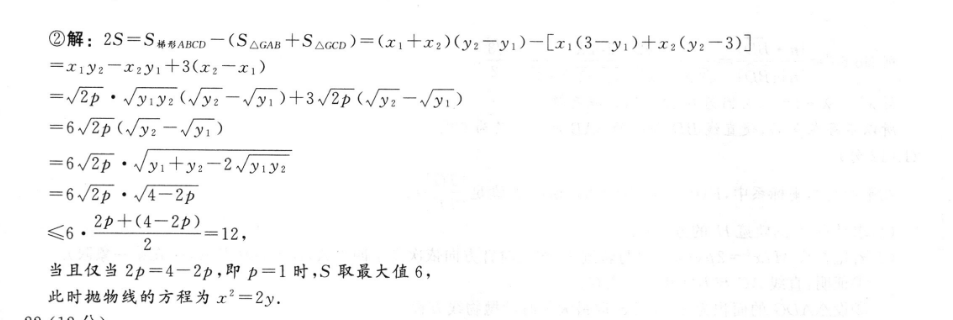 ②解：2S=S梯形ABCD−(S△GAB+S△GCD)=(x₁+x₂)(y₂−y₁)−[x₁(3−y₁)+x₂(y₂−3)]
=x₁y₂−x₂y₁+3(x₂−x₁)
=√2p·√y₁y₂(√y₂−√y₁)+3√2p(√y₂−√y₁)
=6√2p(√y₂−√y₁)
=6√2p·√(y₁+y₂−2√y₁y₂)
=6√2p·√4−2p
≤6·(2p+(4−2p))/2=12,
当且仅当 2p=4−2p,即 p=1 时,S 取最大值 6,
此时抛物线的方程为 x²=2y.